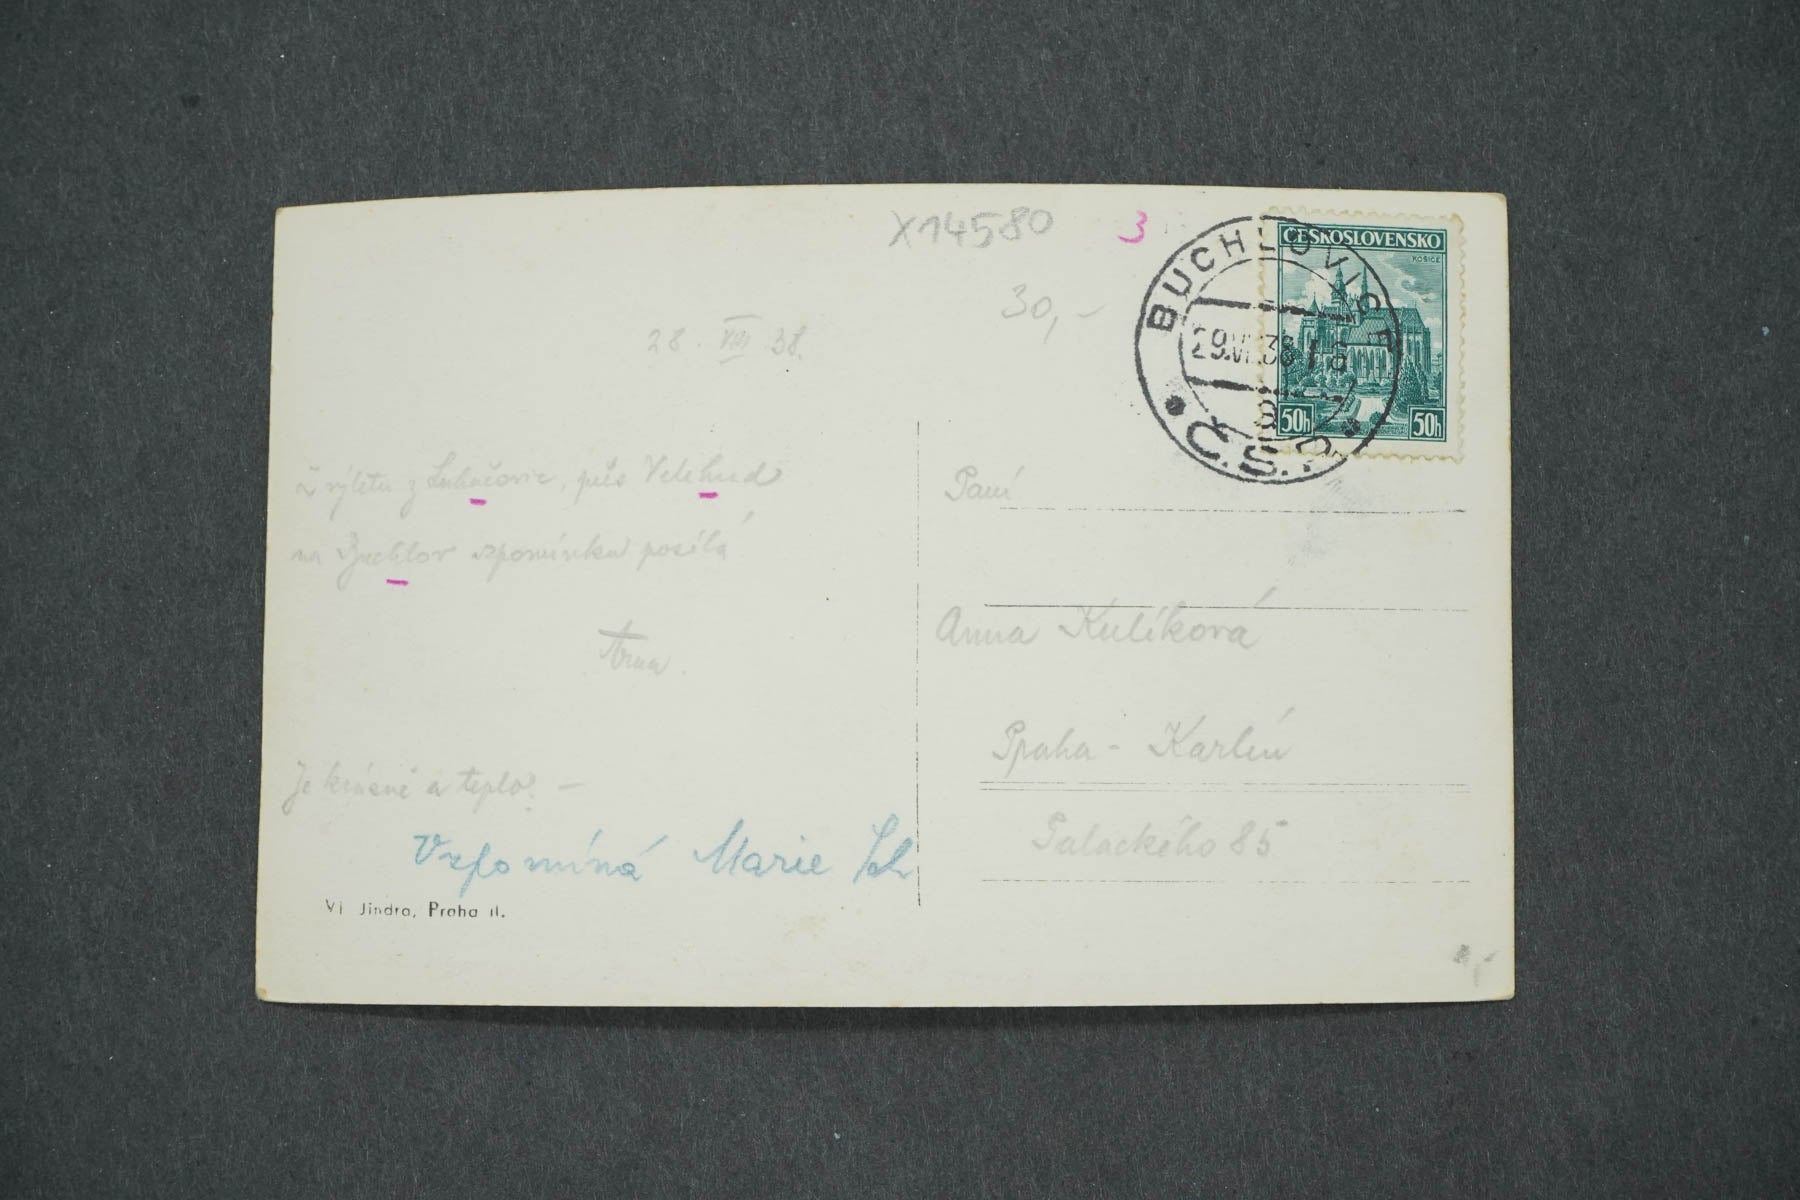 X14580 3
30,-
28. VIII 38.
Z výletu z Luhačovic, přes Velehrad
na Buchlov vzpomínku posílá
Je krásně a teplo. -
Vzpomíná Marie
Vl. Jindra, Praha II.
ČESKOSLOVENSKO
KOŠICE
50h 50h
BUCHLOVICE
Č.S.P.
Paní
Anna Kulíková
Praha - Karlín
Palackého 85